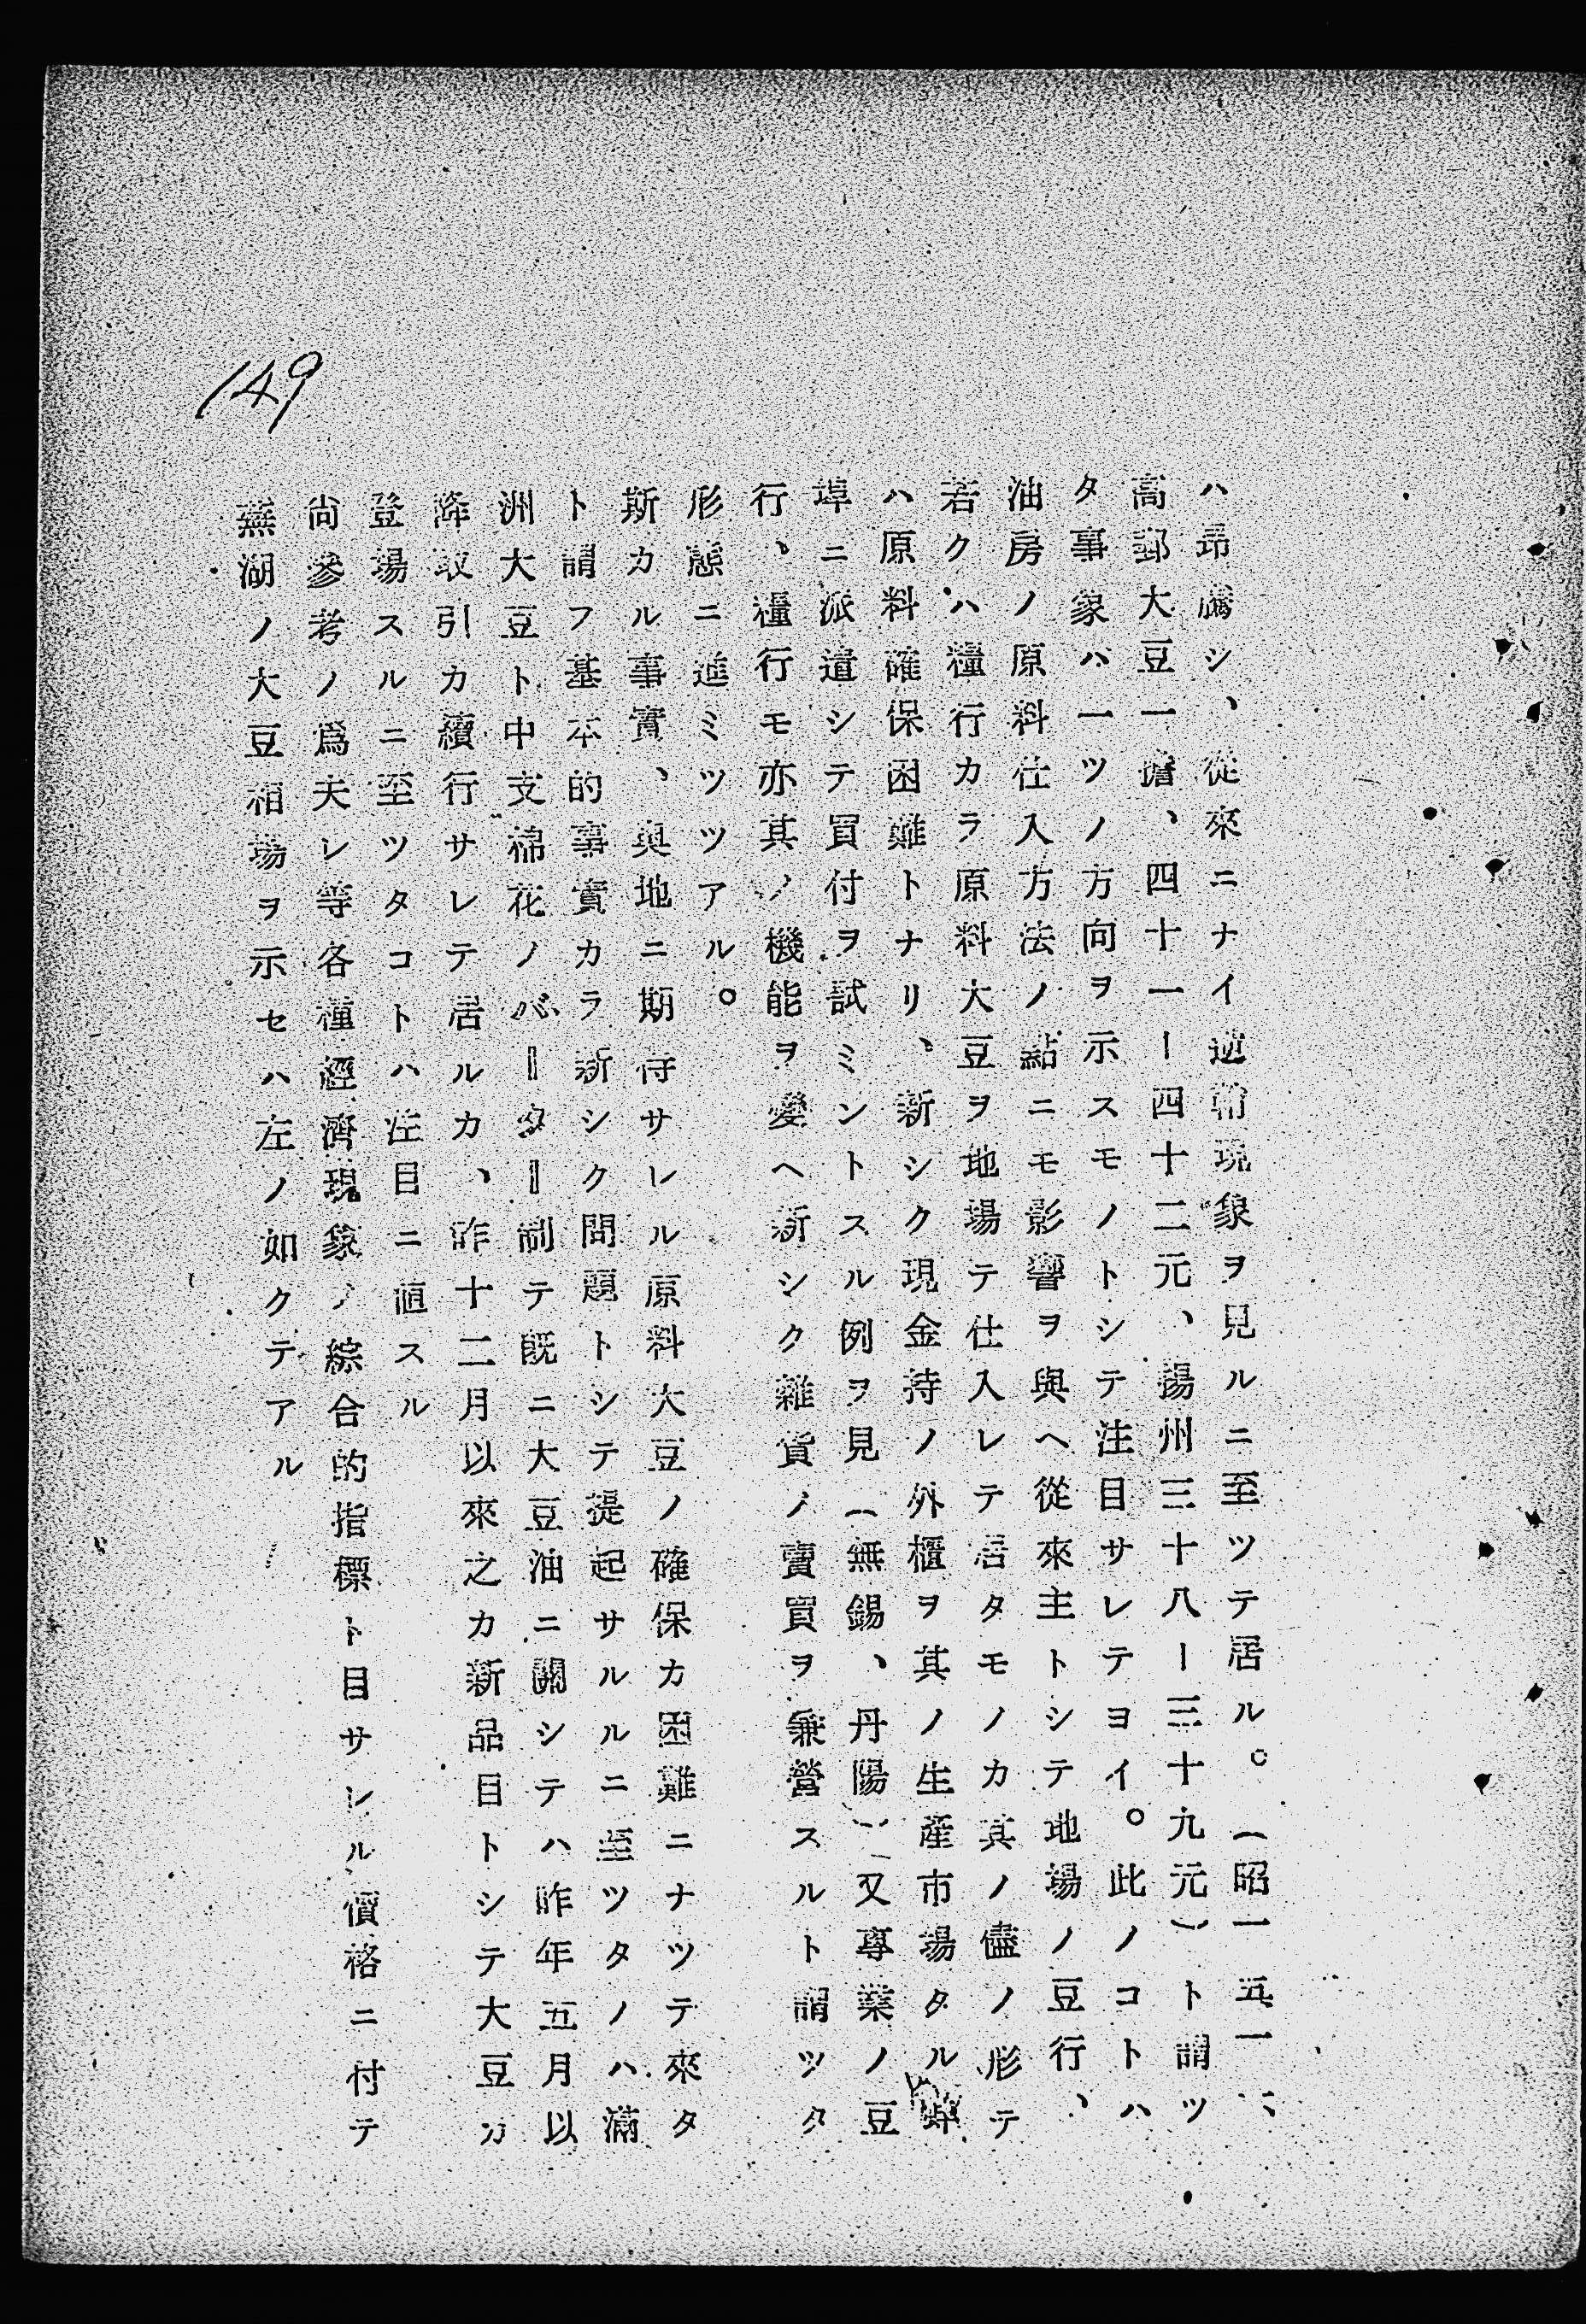 149
ハ昂騰シ、從來ニナイ逆輸現象ヲ見ルニ至ツテ居ル。(昭一五一二、
高郵大豆一擔、四十一ー四十二元、揚州三十八ー三十九元)ト謂ツ
タ事象ハ一ツノ方向ヲ示スモノトシテ注目サレテヨイ。此ノコトハ
油房ノ原料仕入方法ノ點ニモ影響ヲ與ヘ從來主トシテ地場ノ豆行、
若クハ糧行カラ原料大豆ヲ地場テ仕入レテ居タモノカ其ノ儘ノ形テ
ハ原料確保困難トナリ、新シク現金持ノ外櫃ヲ其ノ生産市場タル蚌
埠ニ派遣シテ買付ヲ試ミントスル例ヲ見(無錫、丹陽)又專業ノ豆
行、糧行モ亦其ノ機能ヲ變ヘ新シク雜貨ノ賣買ヲ兼營スルト謂ツタ
形態ニ進ミツツアル。
斯カル事實、奥地ニ期待サレル原料大豆ノ確保カ困難ニナツテ來タ
ト謂フ基本的事實カラ新シク問題トシテ提起サルルニ至ツタノハ滿
洲大豆ト中支棉花ノバーター制テ既ニ大豆油ニ關シテハ昨年五月以
降取引カ續行サレテ居ルカ、昨十二月以來之カ新品目トシテ大豆カ
登場スルニ至ツタコトハ注目ニ値スル
尚參考ノ爲夫レ等各種經濟現象ノ綜合的指標ト目サレル價格ニ付テ
蕪湖ノ大豆相場ヲ示セハ左ノ如クテアル